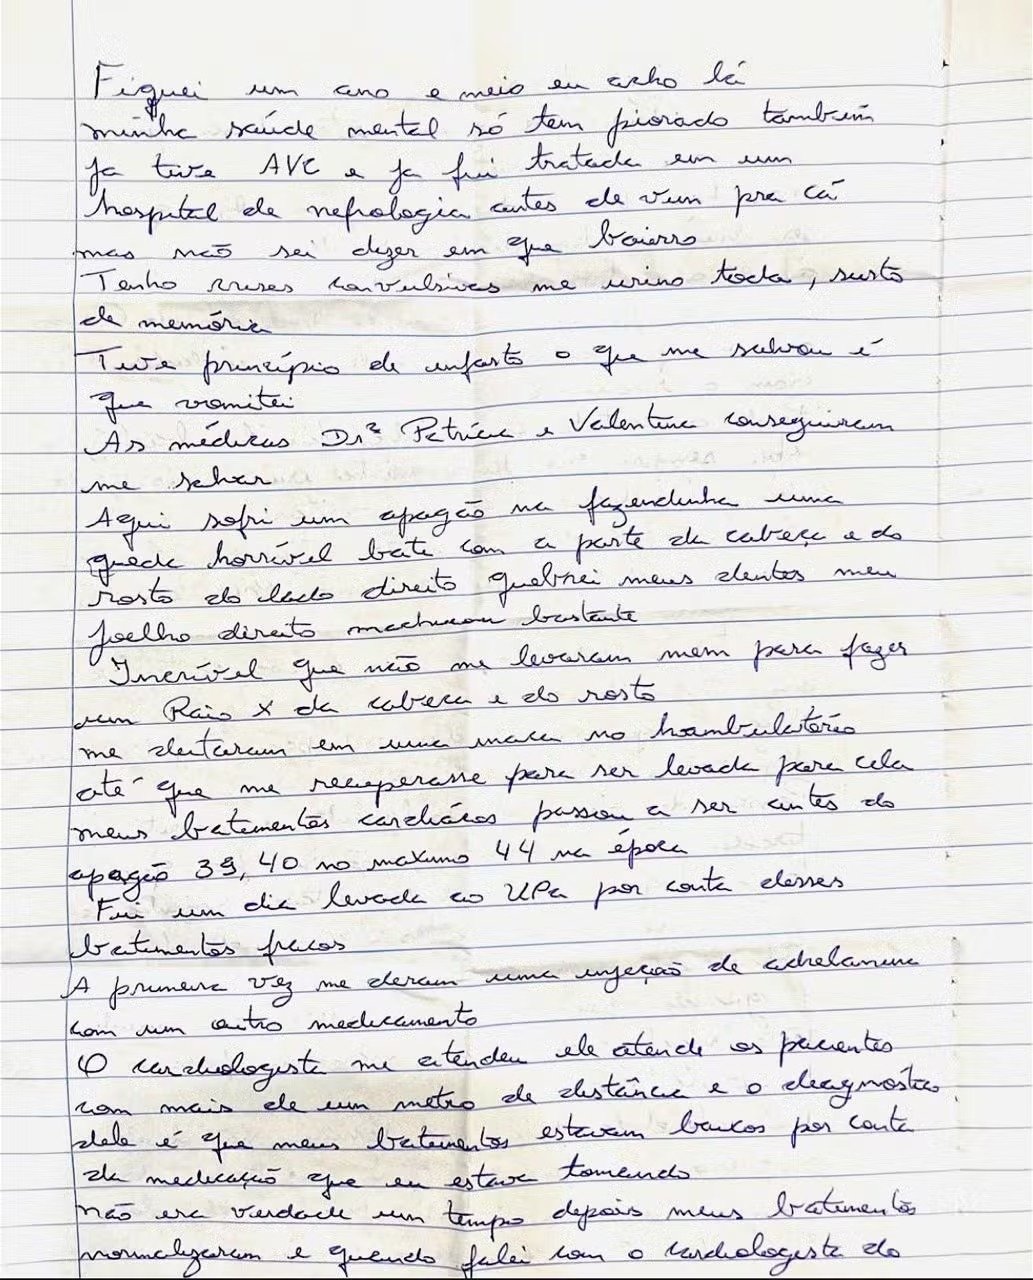 Fiquei um ano e meio eu acho lá
minha saúde mental só tem piorado também
ja tive AVC e ja fui tratada em um
hospital de nefrologia antes de vim pra cá
mas não sei dizer em que bairro
Tenho crises convulsivas me urino toda, surto
de memória
Tive princípio de infarto o que me salvou é
que vomitei
As médicas Drª Patrícia e Valentina conseguiram
me salvar
Aqui sofri um apagão na fazendinha uma
queda horrível bate com a parte da cabeça e do
rosto do lado direito quebrei meus dentes meu
joelho direito machucou bastante
Incrível que não me levaram nem para fazer
um Raio X da cabeça e do rosto
me deitaram em uma maca no hambulatório
até que me recuperasse para ser levada para cela
meus batimentos cardíacos passou a ser antes do
apagão 39, 40 no maximo 44 na época
Fui um dia levada ao UPa por conta desses
batimentos fracos
A primeira vez me deram uma injeção de adrelanina
com um outro medicamento
O cardiologista me atendeu ele atende os pacientes
com mais de um metro de distância e o diagnóstico
dele é que meus batimentos estavam baixos por conta
da medicação que eu estava tomando
não era verdade um tempo depois meus batimentos
normalizaram e quando falei com o cardiologista do